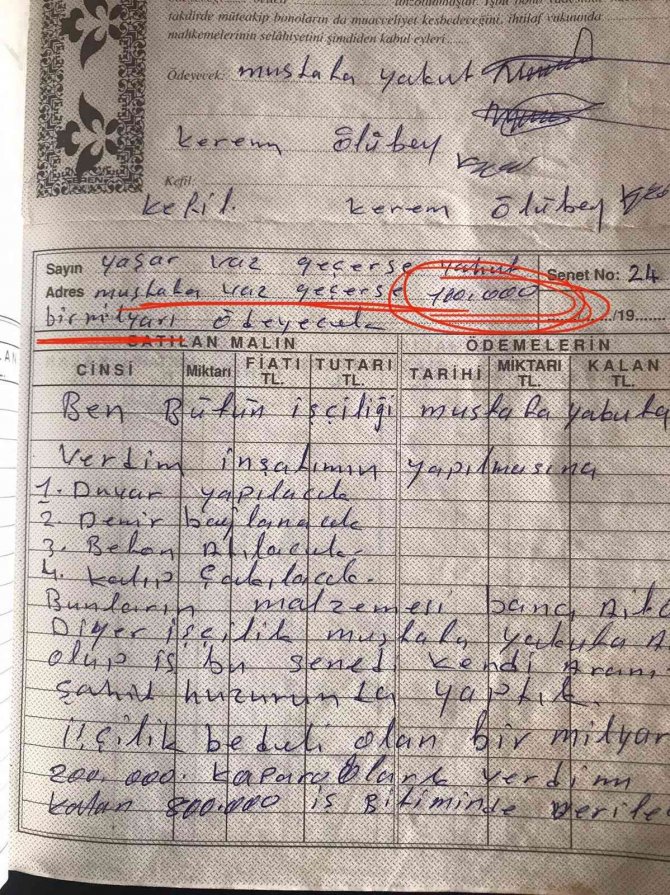 takdirde müteakip bonoların da muacceliyet kesbedeceğini, ihtilaf vukuunda
mahkemelerinin selâhiyetini şimdiden kabul eyleri
Ödeyecek: mustafa yakut
kerem Ölübey
Kefil:
Kefil. kerem Ölübey
Sayın yaşar vaz geçerse yahut
Senet No: 24
Adres mustafa vaz geçerse 100.000
bir milyarı ödeyecek
/19
SATILAN MALIN
ÖDEMELERİN
CİNSİ Miktarı FİATI TL. TUTARI TL. TARİHİ MİKTARI TL. KALAN TL.
Ben Bütün işçiliği mustafa yabuta
Verdim inşatımın yapılmasına
1. Duvar yapılacak
2. Demir bağlanacak
3. Beton Atılacak
4. Kalıp Çakılacak.
Bunların malzemesi bana Aita
Diyer işçilik mustafa yakuta
olup iş bu senedi kendi Aram
Şahit huzurunda yaptık.
işçilik bedeli olan bir milyar
200.000. kaparo olarak verdim
kalan 800.000 iş Bitiminde